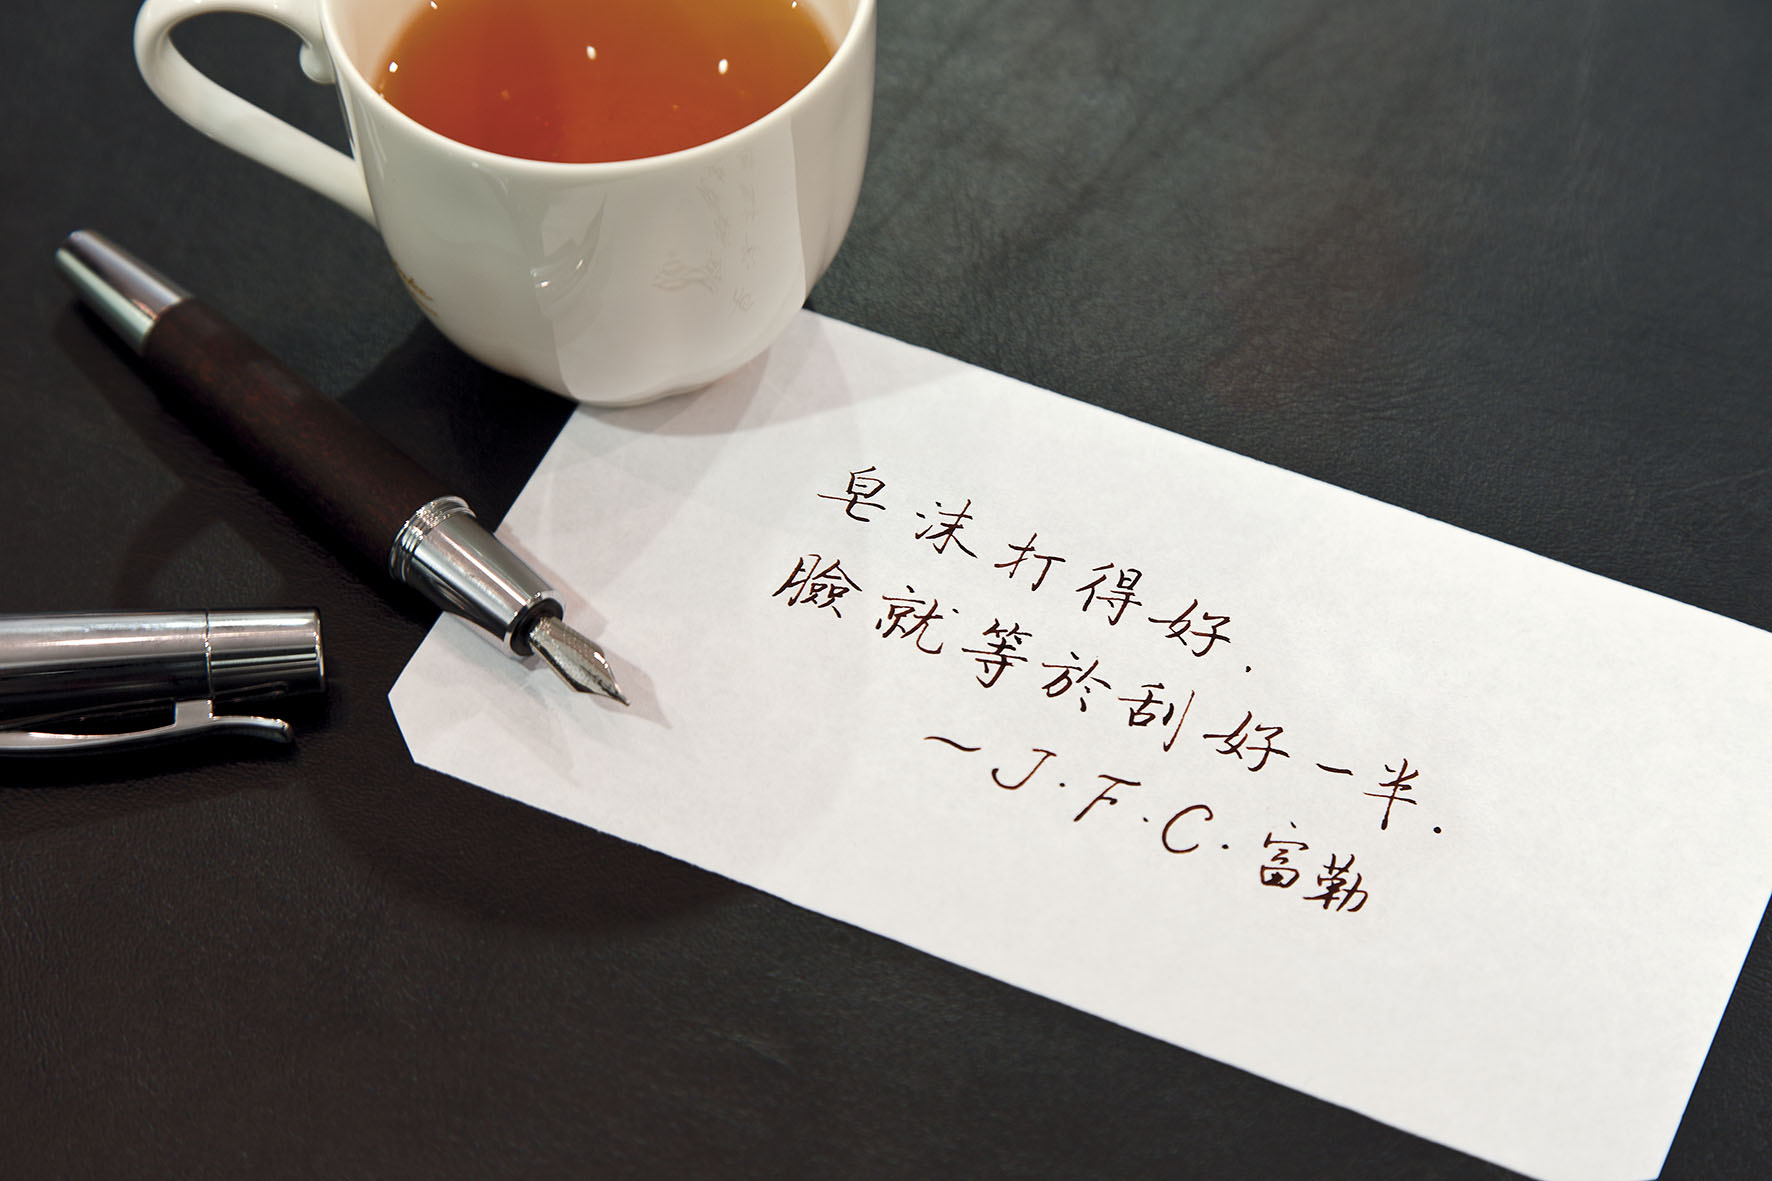 皂沫打得好.
臉就等於刮好一半.
~J.F.C.富勒